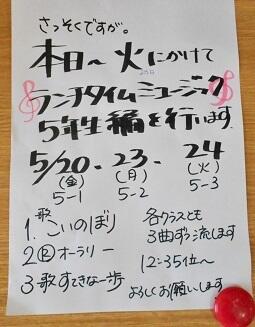 さっそくですが。
本日～火にかけて
ランチタイムミュージック
5年生編を行います。
5/20. 23. 24
(金) (月) (火)
5-1 5-2 5-3
1.歌 こいのぼり
2.Ⓡオーラリー
3.歌 すてきな一歩
各クラスとも
3曲ずつ流します
12:35位～
よろしくお願いします